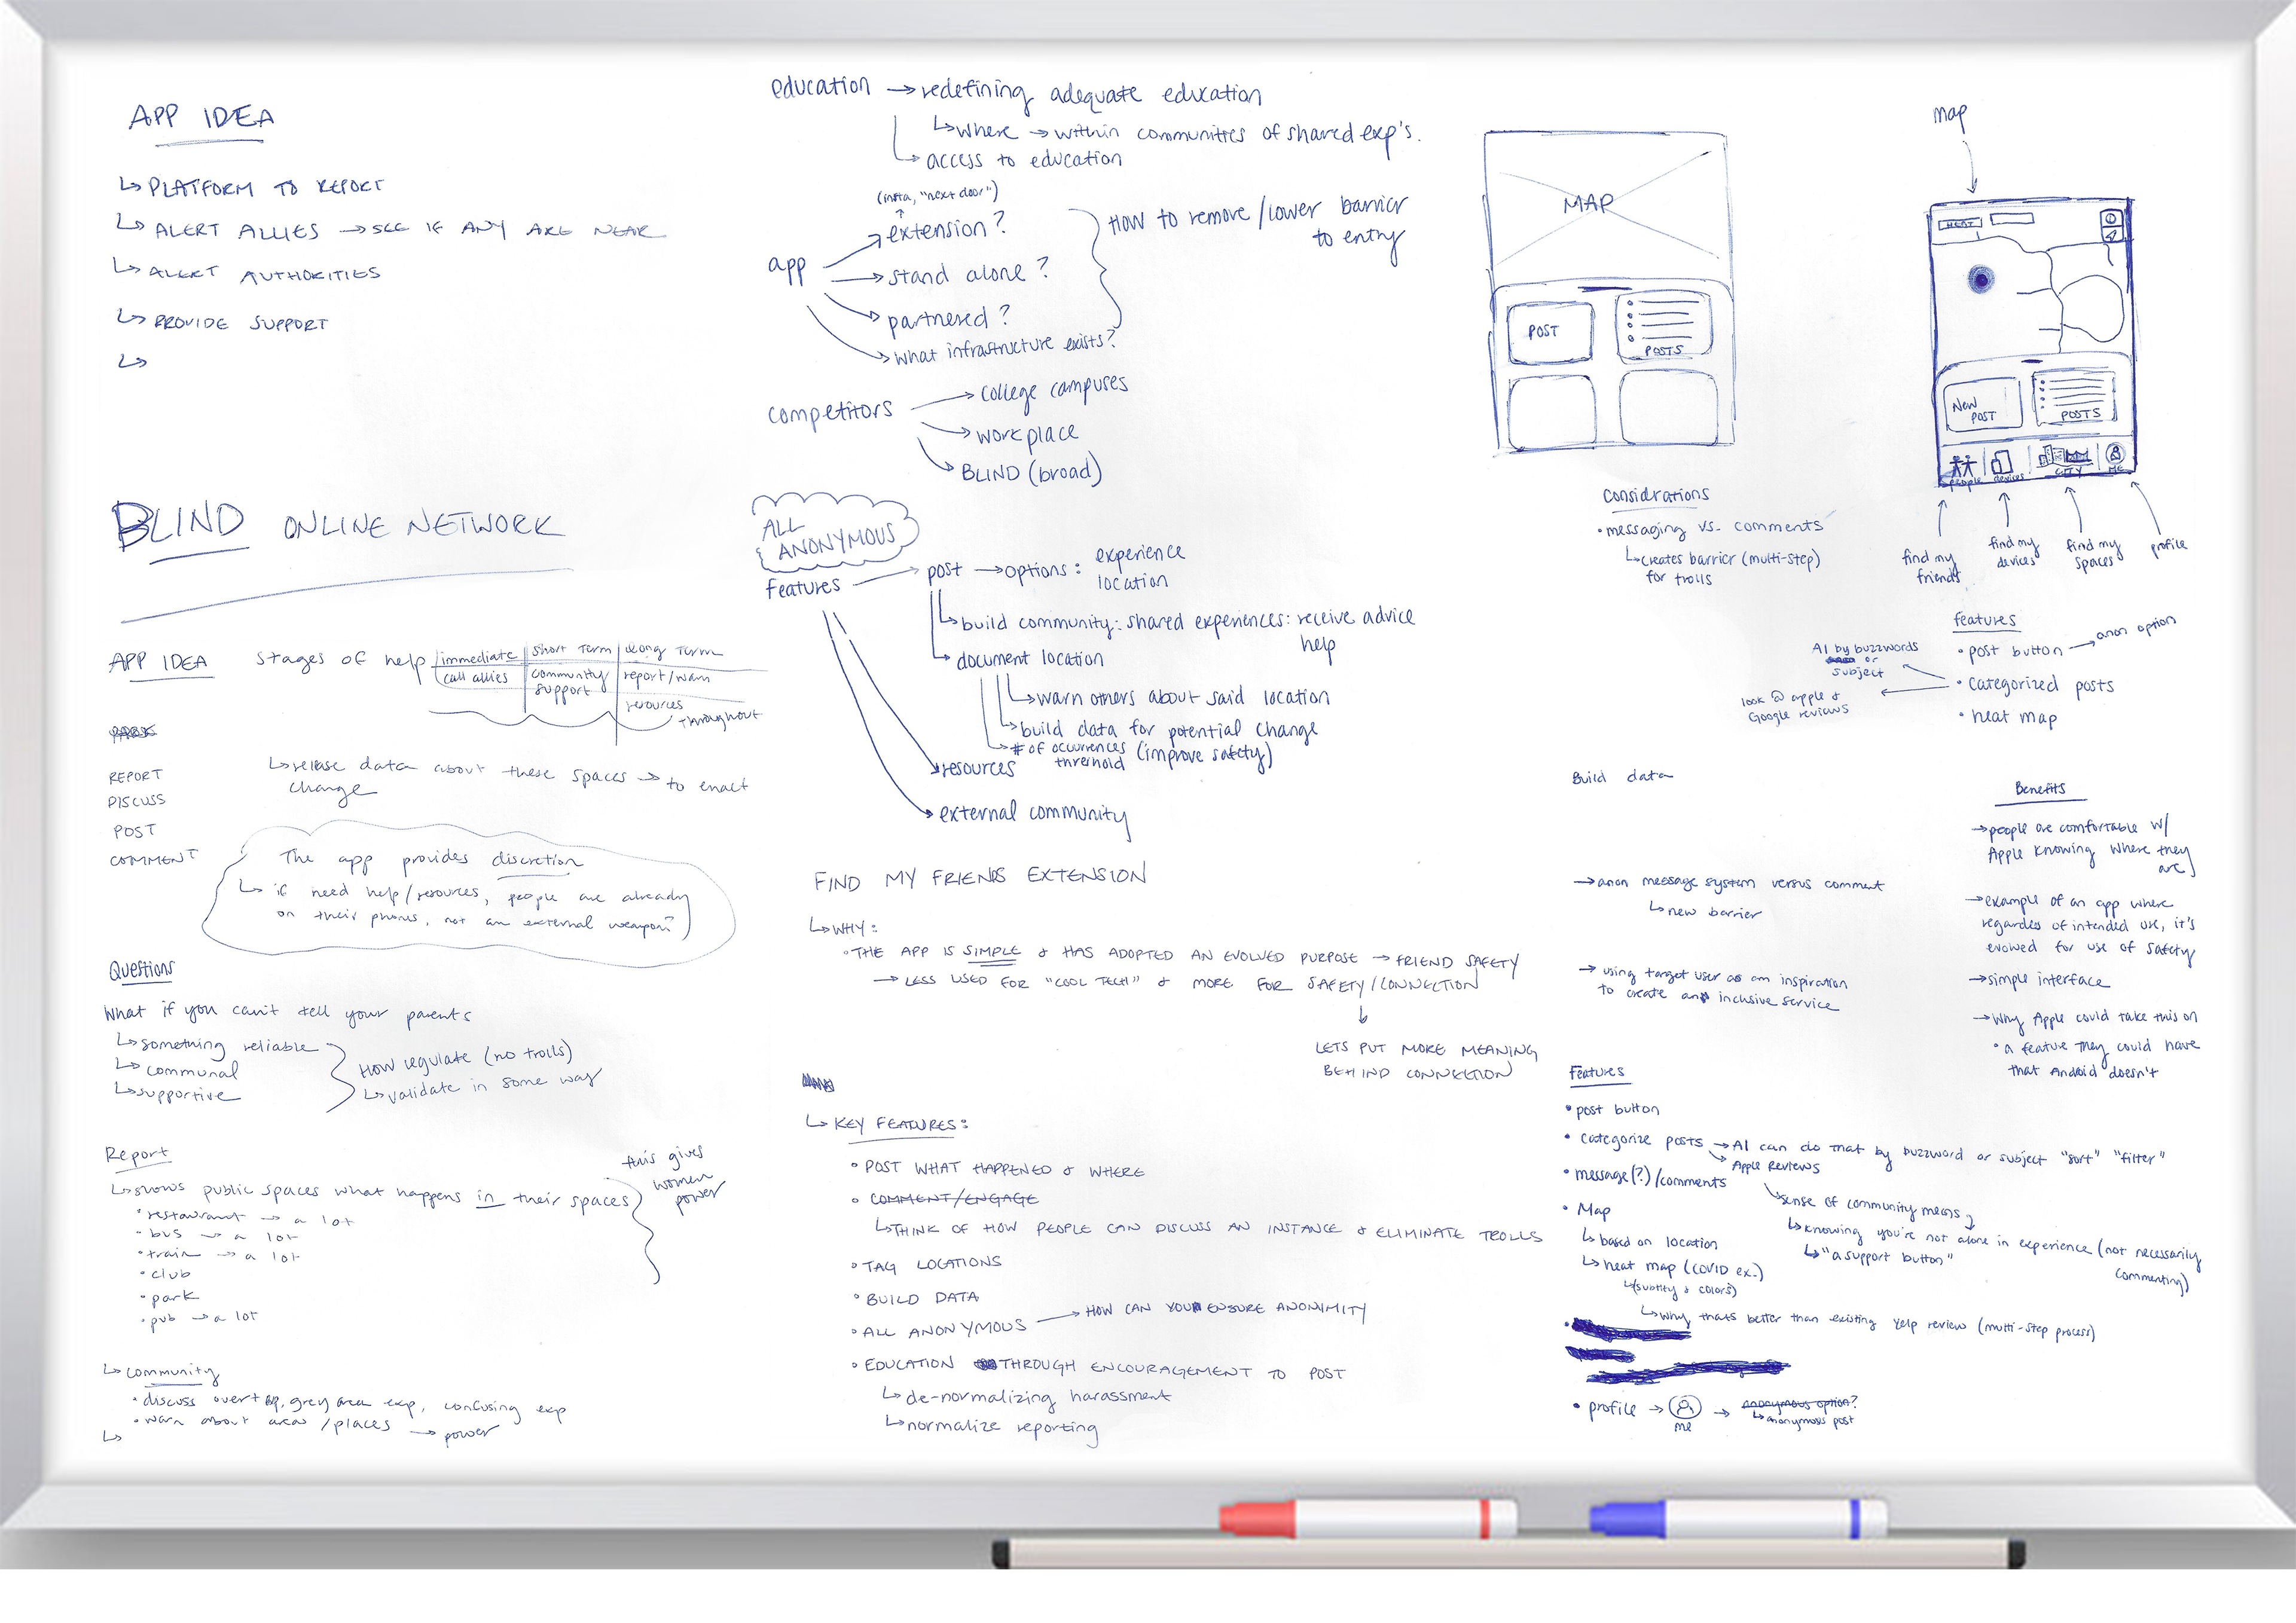 APP IDEA
↳ PLATFORM TO REPORT
↳ ALERT ALLIES → SEE IF ANY ARE NEAR
↳ ALERT AUTHORITIES
↳ PROVIDE SUPPORT
↳
BLIND ONLINE NETWORK
APP IDEA
stages of help
immediate | short term | long term
call allies | community support | report/warn
resources
throughout
REPORT
DISCUSS
POST
COMMENT
↳ release data about these spaces → to enact
change
The app provides discretion
↳ if need help/resources, people are already
on their phones, not an external weapon?
Questions
What if you can't tell your parents
↳ something reliable
↳ communal
↳ supportive
How regulate (no trolls)
↳ validate in some way
Report
↳ shows public spaces what happens in their spaces
• restaurant → a lot
• bus → a lot
• train → a lot
• club
• park
• pub → a lot
this gives
women
power
↳ community
• discuss overt exp, grey area exp, confusing exp
• warn about areas/places → power
↳
education → redefining adequate education
↳ where → within communities of shared exp's.
↳ access to education
(insta, "next door")
app
extension?
stand alone?
partnered?
what infrastructure exists?
HOW to remove/lower barrier
to entry
competitors
→ college campuses
→ workplace
→ BLIND (broad)
ALL
ANONYMOUS
features → post → options: experience
location
↳ build community: shared experiences: receive advice
help
↳ document location
↳ warn others about said location
↳ build data for potential change
↳ # of ocurrences (improve safety)
threshold
resources
external community
FIND MY FRIENDS EXTENSION
↳ WHY:
• THE APP IS SIMPLE & HAS ADOPTED AN EVOLVED PURPOSE → FRIEND SAFETY
→ LESS USED FOR "COOL TECH" & MORE FOR SAFETY/CONNECTION
LETS PUT MORE MEANING
BEHIND CONNECTION
↳ KEY FEATURES:
• POST WHAT HAPPENED & WHERE
• COMMENT/ENGAGE
↳ THINK OF HOW PEOPLE CAN DISCUSS AN INSTANCE & ELIMINATE TROLLS
• TAG LOCATIONS
• BUILD DATA
• ALL ANONYMOUS → HOW CAN YOU ENSURE ANONIMITY
• EDUCATION THROUGH ENCOURAGEMENT TO POST
↳ de-normalizing harassment
↳ normalize reporting
MAP
POST
POSTS
map
HEAT
New
POST
POSTS
people
devices
CITY
ME
find my
friends
find my
devices
find my
spaces
profile
Considrations
• messaging vs. comments
↳ creates barrier (multi-step)
for trolls
features
• post button → anon option
• categorized posts
• heat map
AI by buzzwords
or
subject
look @ apple &
Google reviews
Build data
→ anon message system versus comment
↳ new barrier
→ using target user as an inspiration
to create an inclusive service
Benefits
→ people are comfortable w/
Apple knowing where they
are
→ example of an app where
regardes of intended use, it's
evolved for use of safety
→ simple interface
→ Why Apple could take this on
• a feature they could have
that Android doesn't
Features
• post button
• categorize posts → AI can do that by buzzword or subject "sort" "filter"
→ Apple Reviews
• message(?)/comments
↳ sense of community means
↳ knowing you're not alone in experience (not necessarily
commenting)
↳ "a support button"
• Map
↳ based on location
↳ heat map (COVID ex.)
↳ (subtlty & colors)
↳ Why thats better than existing Yelp review (multi-step process)
• profile → me → anonymous option?
↳ anonymous post